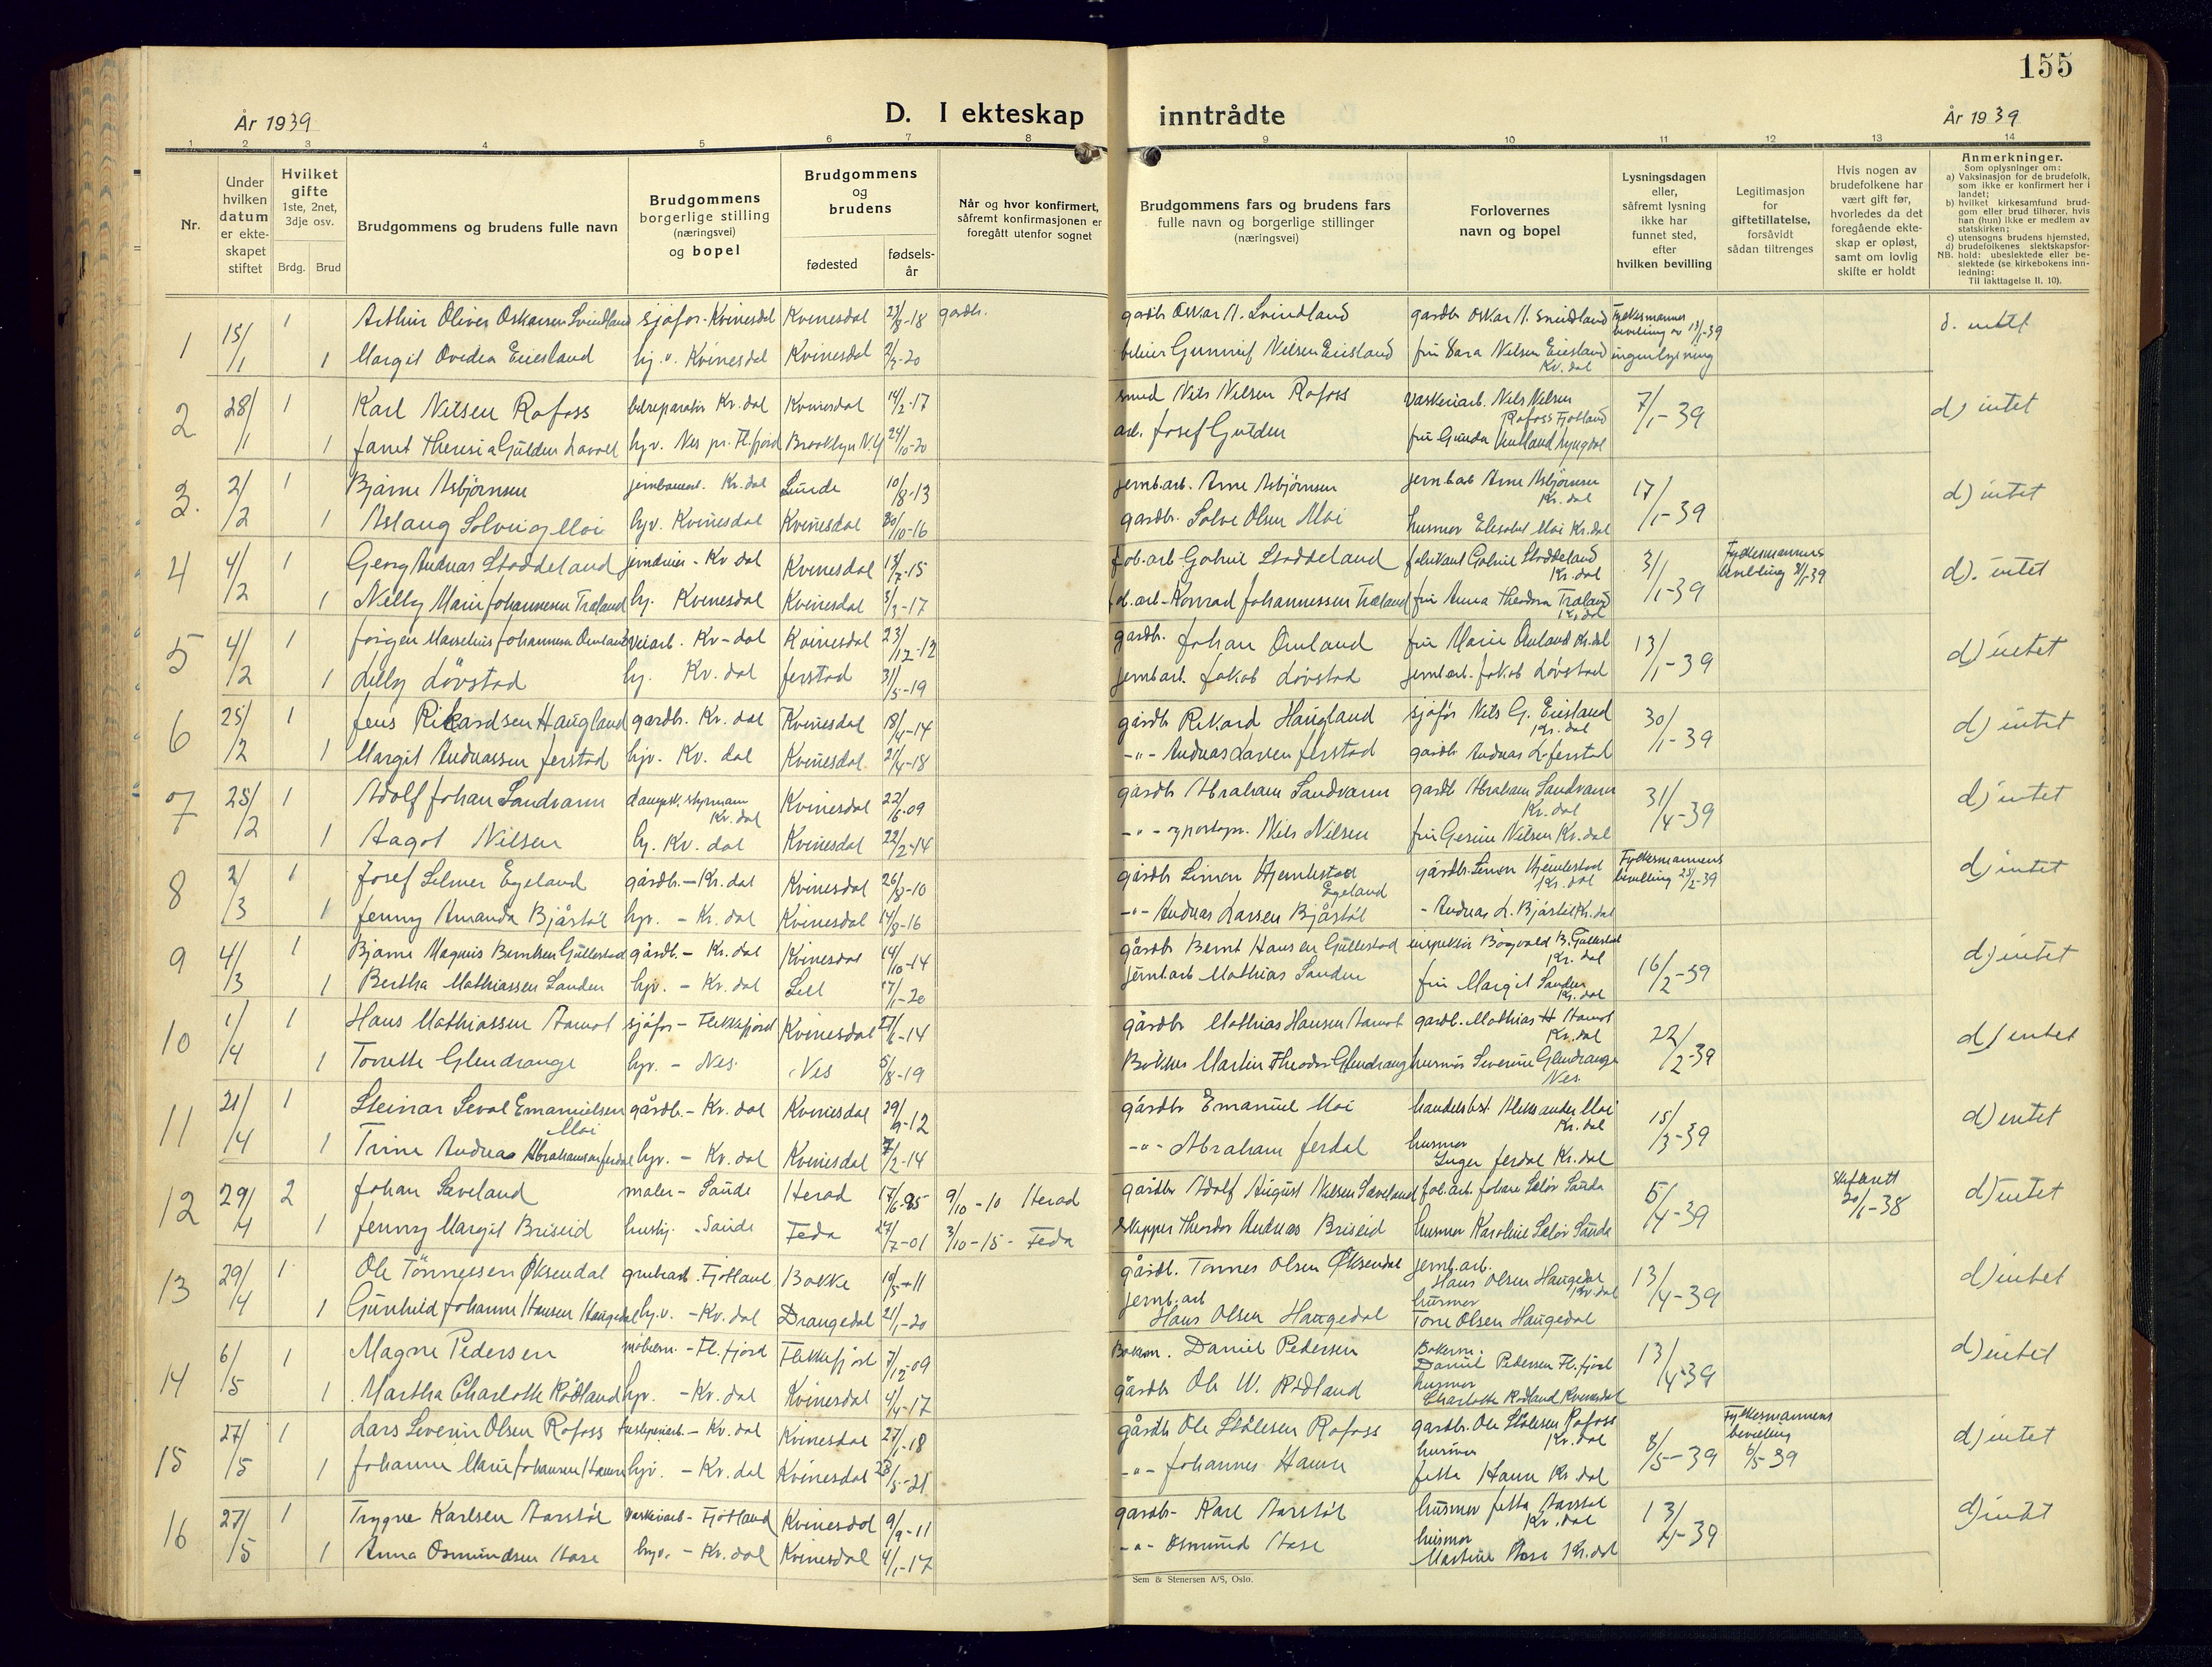 155
År 1939
D. I ekteskap inntrådte
År 1939
1 2 3 4 5 6 7 8 9 10 11 12 13 14
Nr.
Under hvilken datum er ekteskapet stiftet
Hvilket gifte 1ste, 2net, 3dje osv.
Brdg. Brud
Brudgommens og brudens fulle navn
Brudgommens borgerlige stilling (næringsvei) og bopel
Brudgommens og brudens
fødested
fødselsår
Når og hvor konfirmert, såfremt konfirmasjonen er foregått utenfor sognet
Brudgommens fars og brudens fars fulle navn og borgerlige stillinger (næringsvei)
Forlovernes navn og bopel
Lysningsdagen eller, såfremt lysning ikke har funnet sted, efter hvilken bevilling
Legitimasjon for giftetillatelse, forsåvidt sådan tiltrenges
Hvis nogen av brudefolkene har vært gift før, hvorledes da det foregående ekteskap er opløst, samt om lovlig skifte er holdt
Anmerkninger.
Som oplysninger om:
a) Vaksinasjon for de brudefolk, som ikke er konfirmert her i landet;
b) hvilket kirkesamfund brudgom eller brud tilhører, hvis han (hun) ikke er medlem av statskirken;
c) utensogns brudens hjemsted,
d) brudefolkenes slektskapsforhold: ubeslektede eller beslektede (se kirkebokens innledning:
NB.
Til iakttagelse II. 10).
1 15/1 1 Arthur Oliver Oskarsen Svindland sjåfør - Kvinesdal Kvinesdal -18 gardbr. Oskar A. Svindland gardbr Oskar A. Svindland Fylkesmannens bevilling av 13/1-39 d. intet
1 Margit Ovidia Eiesland hj. v. Kvinesdal Kvinesdal -20 Gunnuf Nilsen Eiesland fru Sara Nilsen Eiesland Kv. dal ingen lysning
2 28/1 1 Karl Nilsen Rafoss bilreparatør Kv. dal Kvinesdal 14/2-17 smed Nils Nilsen Rafoss vaskeriarb. Nils Nilsen Rafoss Fjotland 7/1-39 d) intet
1 Janet Theresia Gulden hjv. Nes pr. Fl.fjord Brooklyn N.Y 24/10-20 arb. Josef Gulden fru Gunda Lyngdal
3. 2/2 1 Bjarne Asbjørnsen Kv. dal Lunde 10/8-13 jernb.arb. Arne Asbjørnsen jernb.arb Arne Asbjørnsen Kv. dal 17/1-39 d) intet
1 Aslaug Solveig Moi hjv. Kvinesdal Kvinesdal 30/10-16 gardbr. Salve Olsen Moi husmor Elisabet Moi Kv. dal
4 4/2 1 Georg Andreas Stoddeland - Kv dal Kvinesdal 13/7-15 fab.arb Gabriel Stoddeland fabrikant Gabriel Stoddeland Kv. dal 3/1-39 Fylkesmannens bevilling d). intet
1 Nelly Marie Johannessen Træland hj. Kvinesdal Kvinesdal 3/3-17 fab.arb - Konrad Johannessen Træland fru Anna Theodora Træland Kv. dal
5 4/2 1 Jørgen Marselius Johannesen Omland veiarb. Kv-dal Kvinesdal 23/12-12 gardbr. Johan Omland fru Marie Omland Kv. dal 13/1-39 d) intet
1 Lilly Løvstad hj. Kv. dal Jerstad 31/5-19 jernb.arb. Jakob Løvstad jernb.arb. Jakob Løvstad
6 25/2 1 Jens Rikardsen Haugland gardbr. Kv. dal Kvinesdal 18/4-14 gårdbr Rikard Haugland sjåfør Nils G. Eiesland Kv. dal 30/1-39 d) intet
1 Margit Andreassen Jerstad hjv. Kv. dal Kvinesdal 21/4-18 -"- Andreas Larsen Jerstad gardbr Andreas L. Jerstad
7 25/2 1 Adolf Johan Sandvann dampsk. styrmann Kv. dal Kvinesdal 22/6-09 gårdbr Abraham Sandvann gardbr Abraham Sandvann Kv. dal 31/4-39 d) intet
1 Aagot Nilsen hj. Kv. dal Kvinesdal 22/2-14 -"- og postopn. Nils Nilsen fru Gesine Nilsen Kv. dal
8 2/3 1 Josef Selmer Egeland gårdbr. - Kv. dal Kvinesdal 26/8-10 gårdbr Simon Hjemlestad Egeland gårdbr. Simon Hjemlestad Kv. dal Fylkesmannens bevilling 28/2-39 d) intet
1 Jenny Amanda Bjåstøl hjv. - Kv. dal Kvinesdal 14/8-16 -"- Andreas Larsen Bjåstøl - Andreas L. Bjåstøl Kv. dal
9 4/3 1 Bjarne Magnus Berntsen Gullestad gårdb. - Kv. dal Kvinesdal 14/10-14 gårdbr Bernt Hansen Gullestad inspektør B. Gullestad Kv. dal 16/2-39 d) intet
1 Bertha Mathiassen Sanden hjv. - Kv. dal 17/1-20 jernb.arb Mathias Sanden fru Margit Sanden Kv. dal
10 1/4 1 Hans Mathiassen Aamot sjåfør - Flekkefjord Kvinesdal -14 gårdbr Mathias Hansen Aamot gardb. Mathias H Aamot Kv. dal 22/2-39 d) intet
1 Torette Glendrange hjv. - Nes. Nes 5/8-19 Martin Theodor Glendrange husmor Severine Glendrange Nes.
11 21/4 1 Steinar Seval Emanuelsen Moi gårdb. - Kv. dal Kvinesdal 29/9-12 gårdbr Emanuel Moi handelsbest. Aleksander Moi Kv. dal 15/3-39 d) intet
1 Trine Andrea Abrahamsen Jerdal hjv. - Kv. dal Kvinesdal 7/2-14 -"- Abraham Jerdal husmor Inger Jerdal Kv. dal
12 29/4 2 Johan Sæveland maler - Sande Herad 17/6-85 9/10-10 Herad gårdbr Adolf August Nilsen Sæveland fab.arb. Johan Sande 5/4-39 -38 d) intet
1 Jenny Margit Briseid hushj. - Sande Feda 27/7-01 3/10-15 - Feda skipper Theodor Andreas Briseid husmor Karoline Sande
13 29/4 1 Ole Tønnessen Øksendal grubearb. Fjotland Bakke 10/5-11 gårdb. Tønnes Olsen Øksendal jernb.arb. Hans Olsen Haugedal Kv. dal 13/4-39 d) intet
1 Gunhild Johanne Hansen Haugedal hj.v. - Kv. dal Drangedal 21/1-20 jernb.arb Hans Olsen Haugedal husmor Tone Olsen Haugedal
14 6/5 1 Magne Pedersen - Fl. fjord Flekkefjord 7/12-09 Daniel Pedersen Daniel Pedersen Fl. fjord 13/4-39 d) intet
1 Martha Charlotte Rødland hjv. - Kv. dal Kvinesdal 4/4-17 gårdbr Ole W. Rødland husmor Charlotte Rødland Kvinesdal
15 27/5 1 Lars Severin Olsen Rafoss - Kv. dal Kvinesdal -18 gårdbr Ole Stålesen Rafoss gardbr. Ole Stålesen Rafoss Kv. dal 8/5-39 Fylkesmannens bevilling 6/5-39 d) intet
1 Johanne Marie Johansen Hamre hjv. - Kv. dal Kvinesdal 23/5-21 -"- Johannes Hamre husmor Jetta Hamre Kv. dal
16 27/5 1 Trygve Karlsen Aarstøl vaskeriarb - Fjotland Kvinesdal 9/9-11 gardbr - Karl Aarstøl husmor Jetta Aarstøl Kv. dal 13/5-39 d) intet
1 Anna Osmundsen Aase hjv. - Kv. dal Kvinesdal 4/1-17 -"- Osmund Aase husmor Martine Aase Kv. dal
Sem & Stenersen A/S, Oslo.